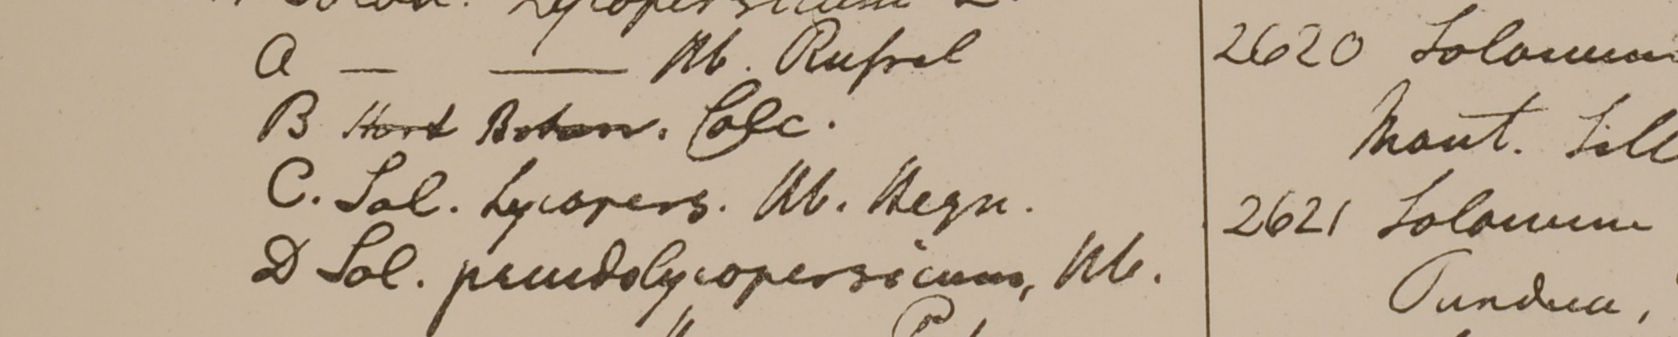 Lycopersicum L.
A — — Hb. Russel
B Hort Botan. Calc.
C. Sol. Lycopers. Hb. Heyn.
D Sol. pseudolycopersicum, Hb.
2620 Solanum
Mont. Sill
2621 Solanum
Pundua,